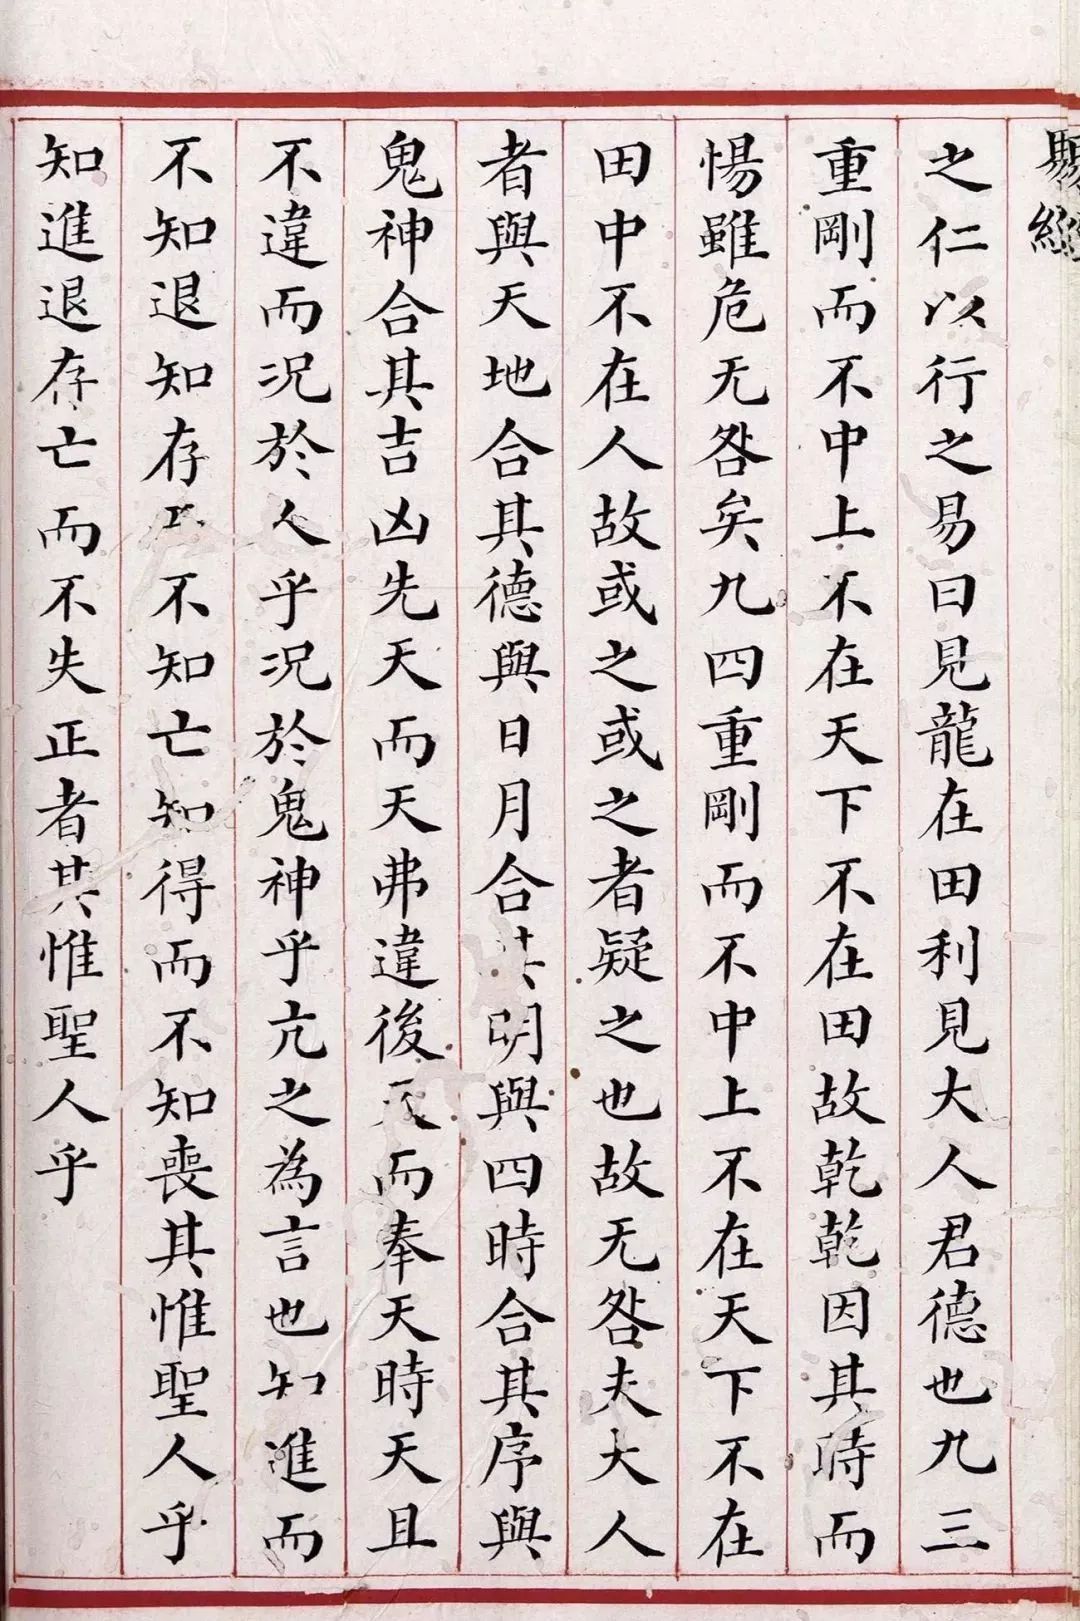 之仁以行之易曰見龍在田利見大人君德也九三
重剛而不中上不在天下不在田故乾乾因其時而
惕雖危无咎矣九四重剛而不中上不在天下不在
田中不在人故或之或之者疑之也故无咎夫大人
者與天地合其德與日月合其明與四時合其序與
鬼神合其吉凶先天而天弗違後天而奉天時天且
不違而况於人乎况於鬼神乎亢之為言也知進而
不知退知存不知亡知得而不知喪其惟聖人乎
知進退存亡而不失正者其惟聖人乎